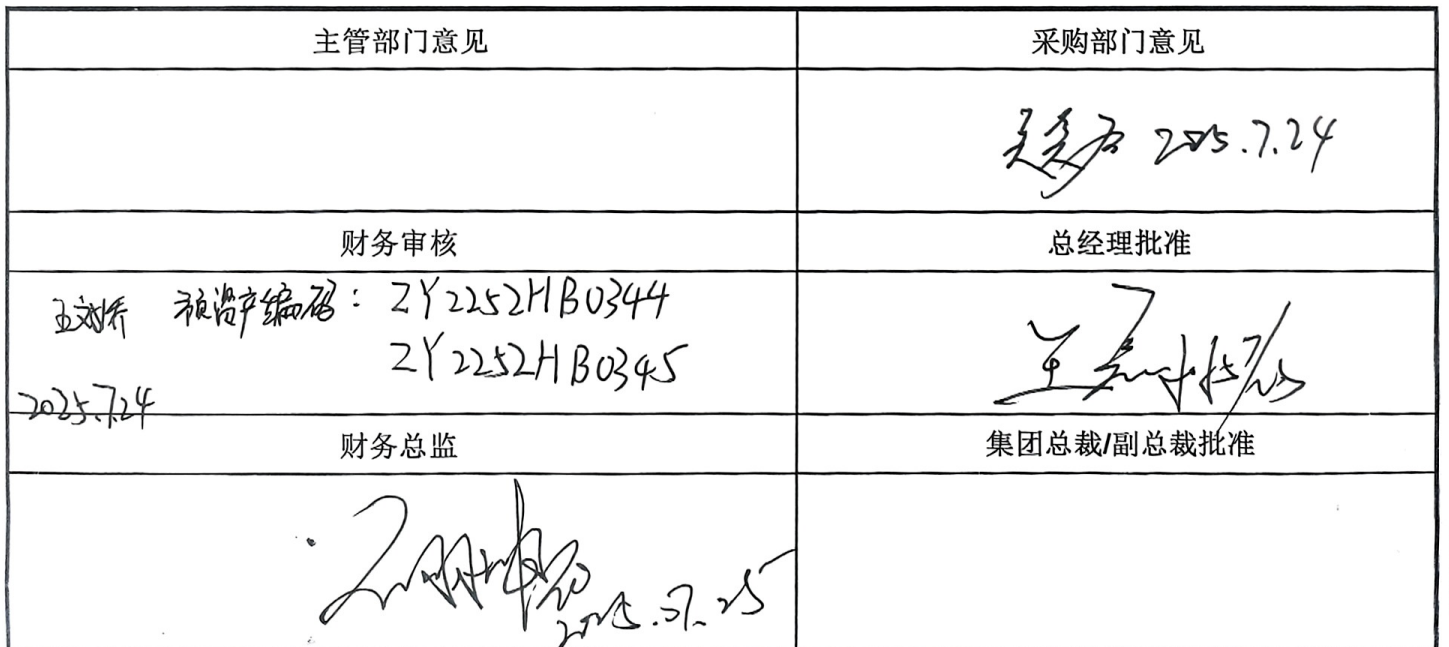 主管部门意见
采购部门意见
2025.7.24
财务审核
总经理批准
预资产编码：ZY2252HB0344
ZY2252HB0345
2025.7.24
财务总监
集团总裁/副总裁批准
2025.07.25